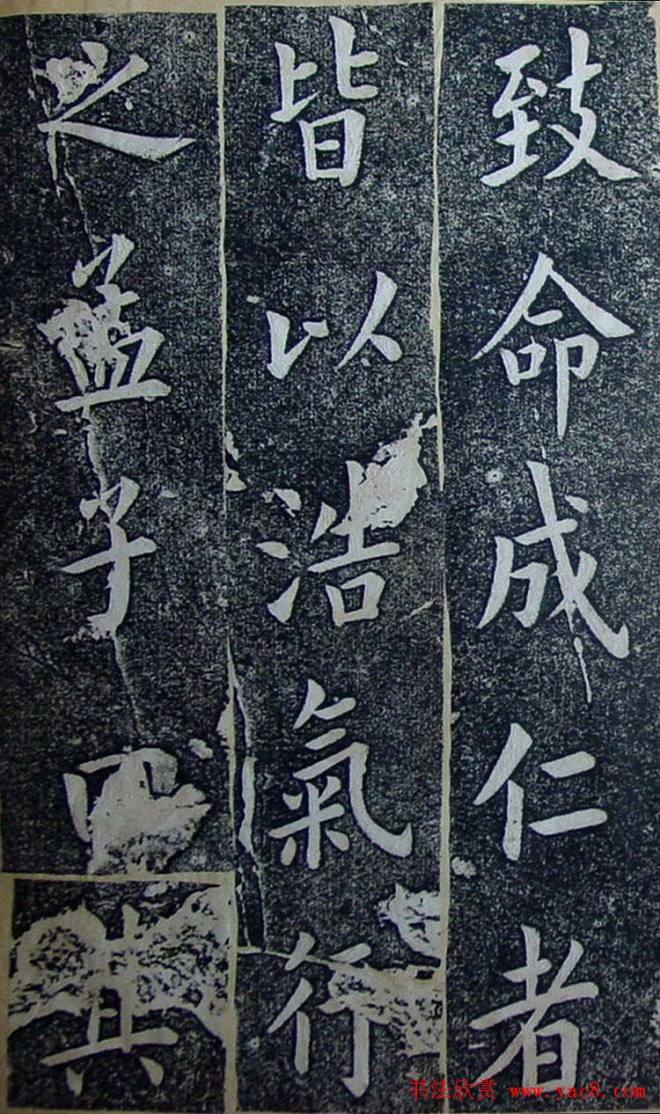 致命成仁者
皆以浩氣行
之孟子曰其
书法欣赏 www.yac8.com